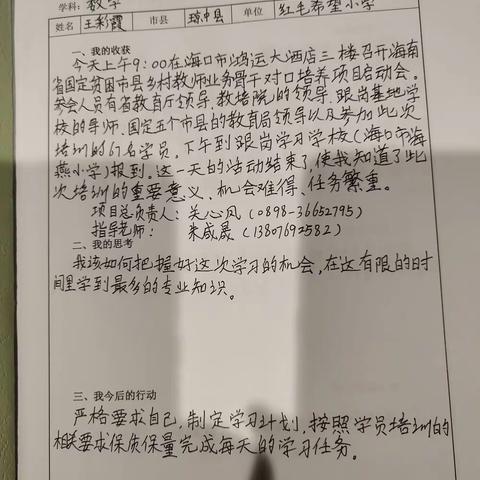 学科：数学
姓名 王彩霞 市县 琼中县 单位 红毛希望小学
一、我的收获
今天上午9:00在海口市鸿运大酒店三楼召开海南
省国定贫困市县乡村教师业务骨干对口培养项目启动会。
参会人员有省教育厅领导、教培院的领导、跟岗基地学
校的导师、国定五个市县的教育局领导以及参加此次
培训的67名学员。下午到跟岗学习学校（海口市海
燕小学）报到。这一天的活动结束了，使我知道了此
次培训的重要意义、机会难得、任务繁重。
项目总负责人：关心凤（0898-36652795）
指导老师：朱成晟（13807692582）
二、我的思考
我该如何把握好这次学习的机会，在这有限的时
间里学到最多的专业知识。
三、我今后的行动
严格要求自己，制定学习计划，按照学员培训的
相关要求保质保量完成每天的学习任务。